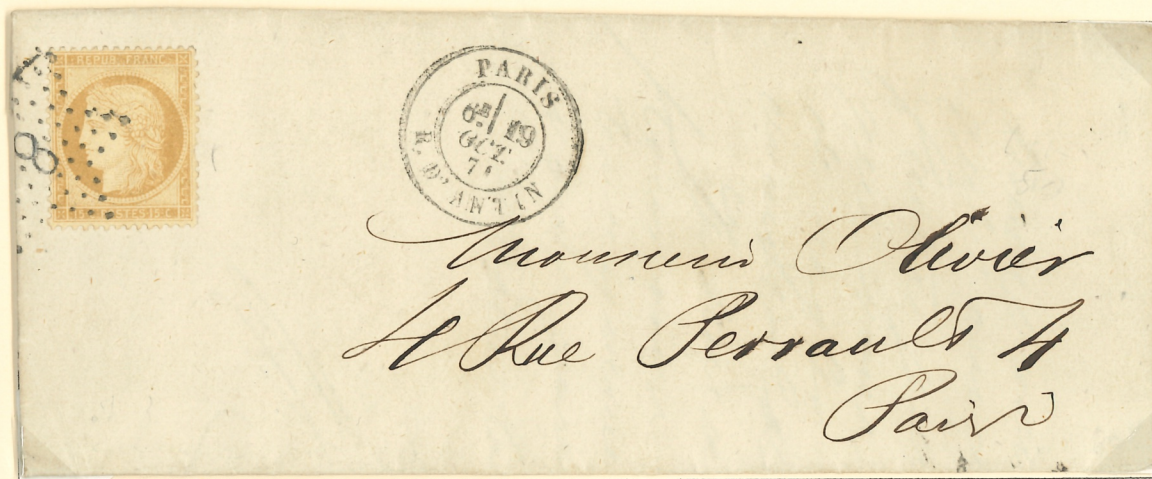 REPUB. FRANC.
15 C. POSTES 15 C.
8
PARIS
6E 19
OCT.
71
R. D'ANTIN
Monsieur Olivier
4 Rue Perrault 4
Paris